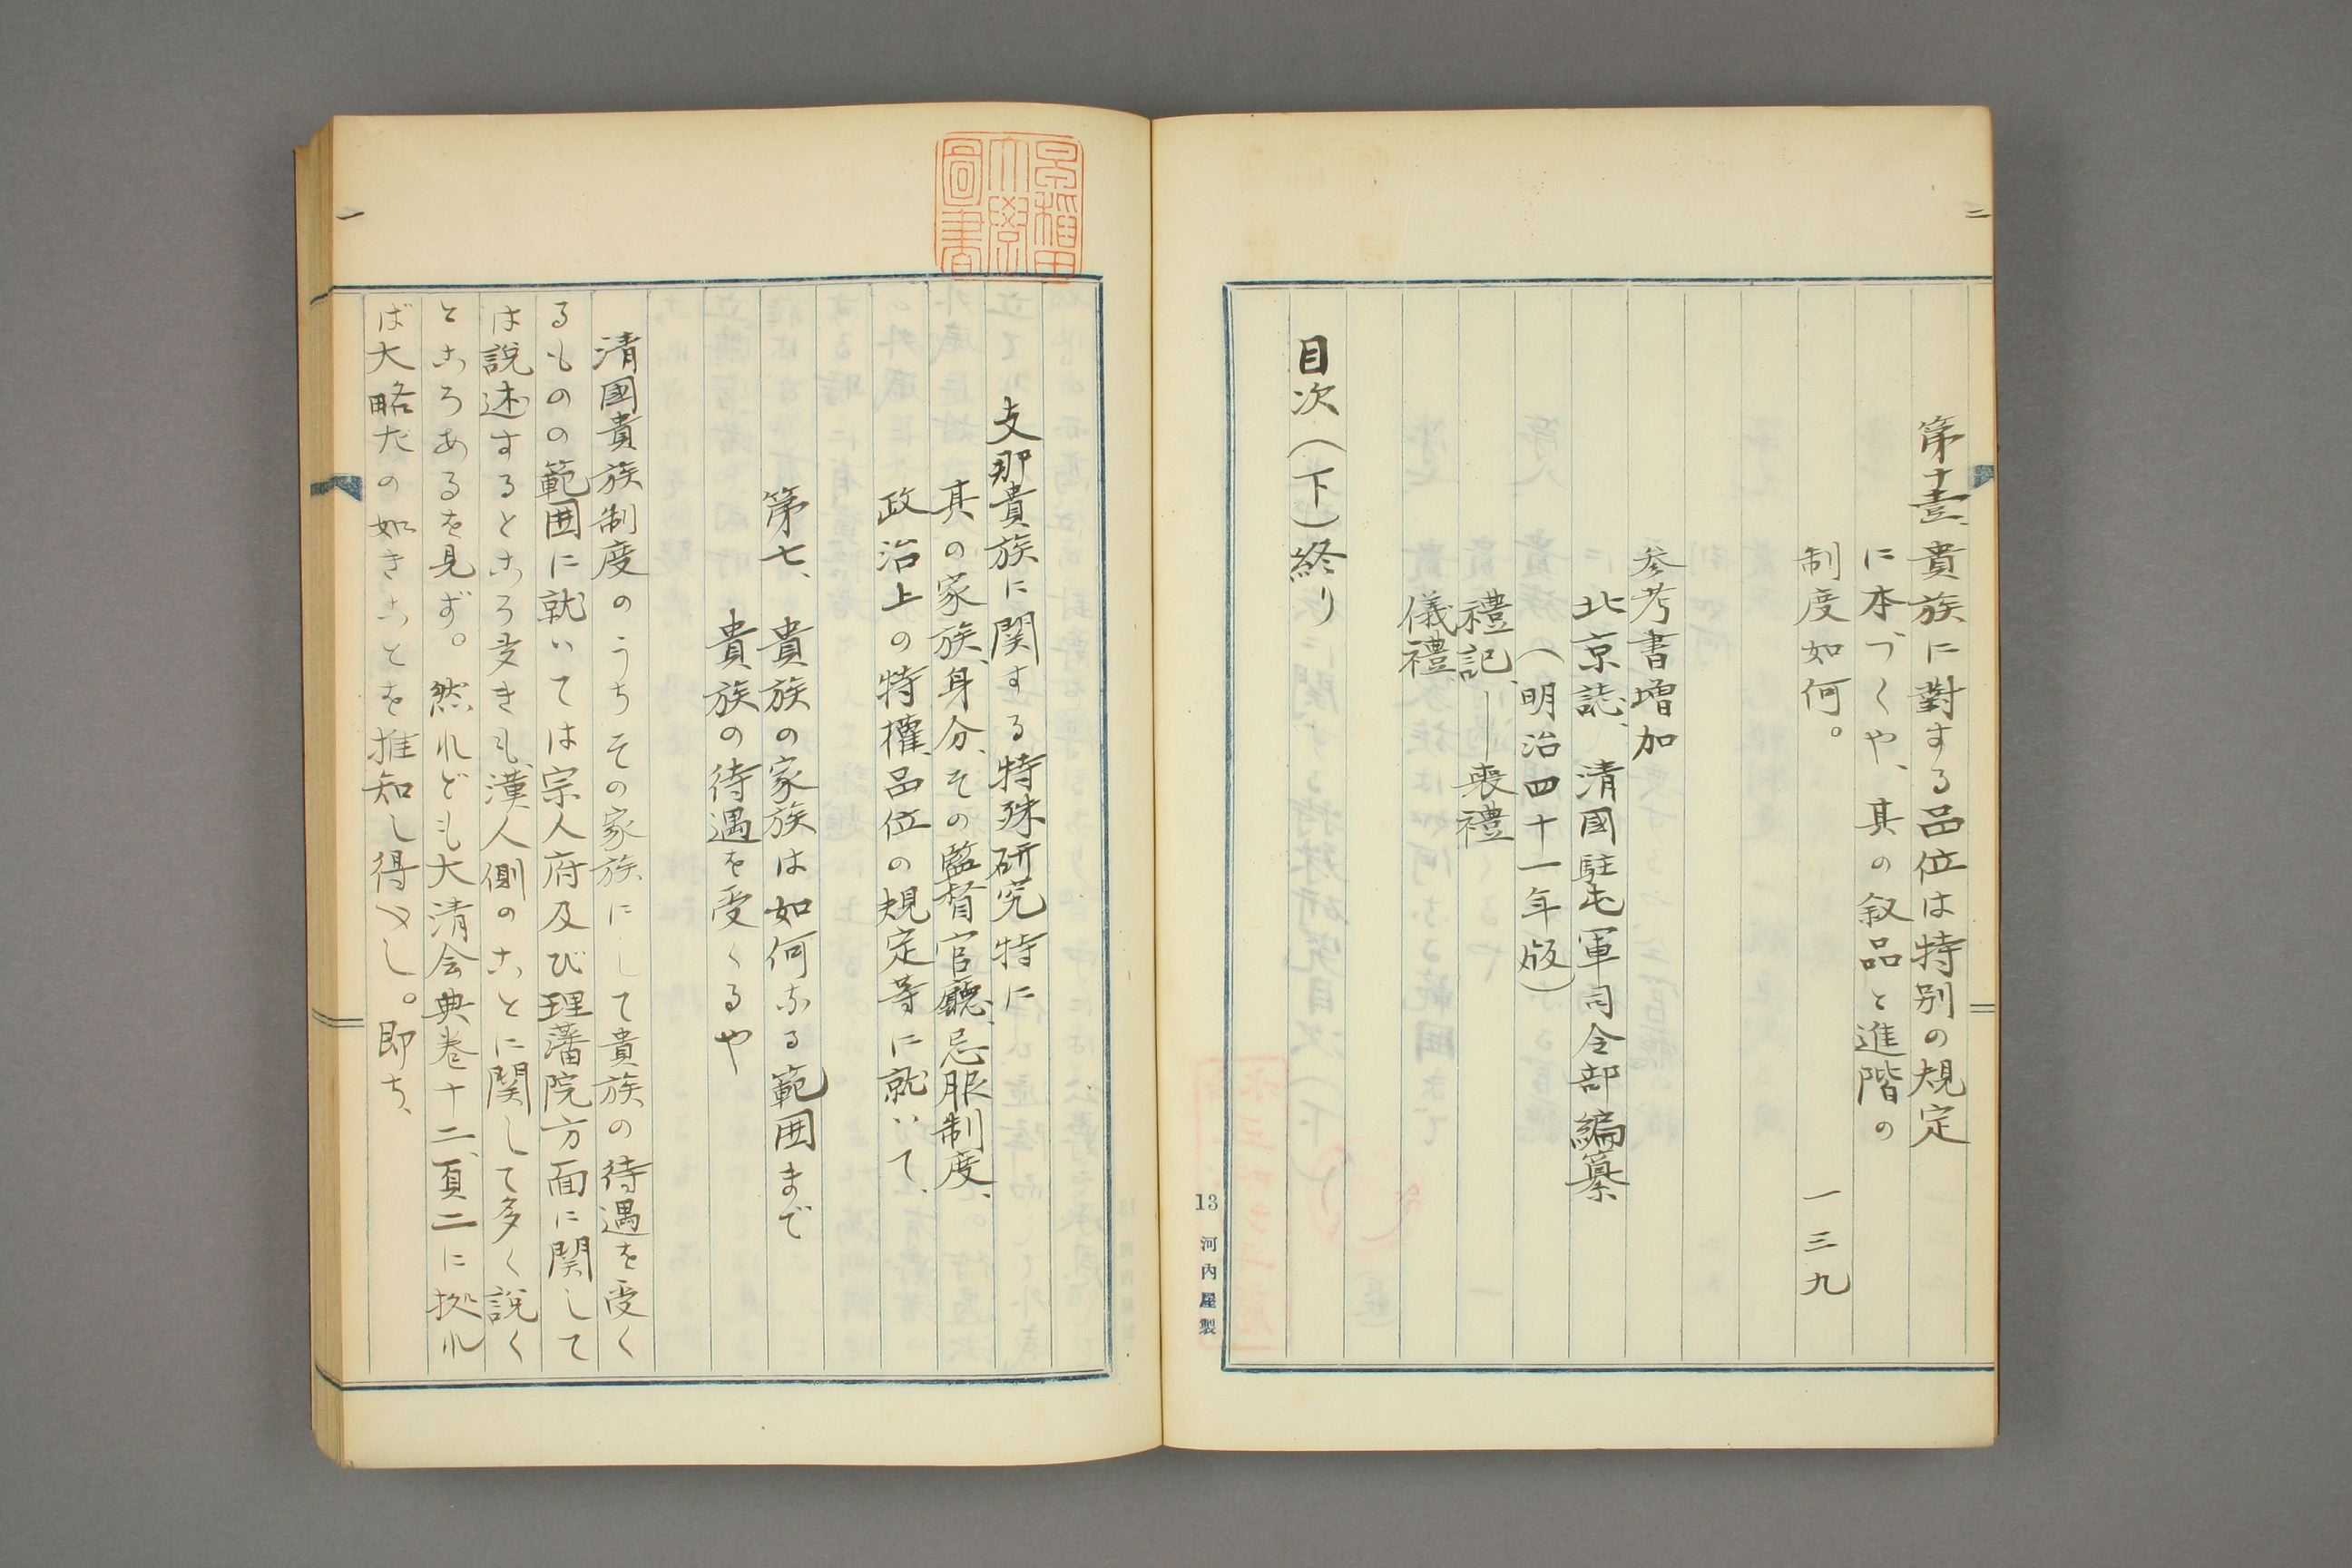 二
第十壹、貴族に對する品位は特別の規定
に本づくや、其の叙品と進階の
制度如何。 一三九
参考書増加
北京誌、清國駐屯軍司令部編纂
(明治四十一年版)
禮記、―喪禮
儀禮
目次(下)終り
13 河内屋製
早稲田大學圖書
支那貴族に関する特殊研究特に
其の家族、身分、その監督官廳、忌服制度、
政治上の特權、品位の規定等に就いて、
第七、貴族の家族は如何なる範囲まで
貴族の待遇を受くるや
清國貴族制度のうちその家族にして貴族の待遇を受く
るものの範囲に就いては宗人府及び理藩院方面に関して
は説述するところ多きも、漢人側のことに関して多く説く
ところあるを見ず。然れども大清会典巻十二、頁二に拠れ
ば大略左の如きことを推知し得べし。即ち、
一